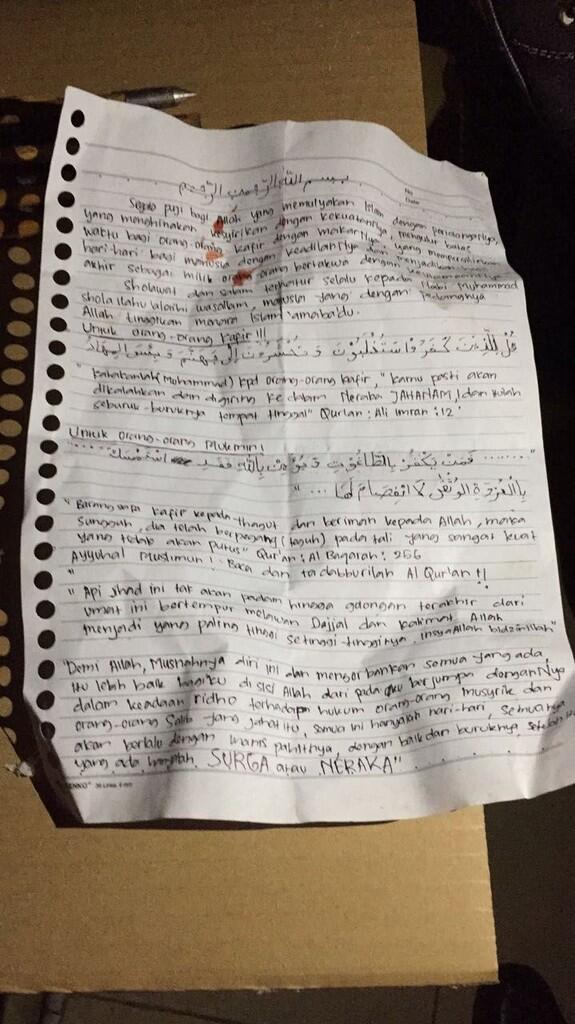 No
Date
بسم الله الرحمن الرحيم
Segala puji bagi Allah yang memulyakan Islam dengan
yang menghinakan kesyirikan dengan kekuatanNya, mengatur
waktu bagi orang-orang kafir dengan makarNya, yang
hari-hari bagi manusia dengan keadilanNya dan menjadikan
akhir sebagai milik orang-orang bertakwa dengan
Sholawat dan salam tercurah selalu kepada Nabi Muhammad
sholallahu alaihi wasallam, manusia yang dengan pedangnya
Allah tinggikan menara Islam amaba'du.
Untuk orang-orang kafir !!!
قل للذين كفروا ستغلبون وتحشرون إلى جهنم وبئس المهاد
" Katakanlah (Muhammad) kpd orang-orang kafir, " kamu pasti akan
dikalahkan dan digiring ke dalam Neraka JAHANAM, dan itulah
seburuk-buruknya tempat tinggal" Qur'an : Ali imran : 12
Untuk orang-orang Mukmin !
"........ فمن يكفر بالطاغوت ويؤمن بالله فقد استمسك
بالعروة الوثقى لا انفصام لها ... "
" Barang siapa kafir kepada thagut dan beriman kepada Allah, maka
sungguh, dia telah berpegang (teguh) pada tali yang sangat kuat
yang tidak akan putus" Qur'an : Al Baqarah : 256
Ayyuhal Muslimun ! Baca dan tadabburilah Al Qur'an !!
"
" Api Jihad ini tak akan padam hingga golongan terakhir dari
umat ini bertempur melawan Dajjal dan kalimat Allah
menjadi yang paling tinggi setinggi-tingginya, insyaAllah bidznillah"
"Demi Allah, Musnahnya diri ini dan mengorbankan semua yang ada,
itu lebih baik bagiku di sisi Allah dari pada aku berjumpa denganNya
dalam keadaan ridho terhadap hukum orang-orang musyrik dan
orang-orang Salib yang jahat itu, semua ini hanyalah hari-hari, semuanya
akan berlalu dengan manis pahitnya, dengan baik dan buruknya, setelah itu
yang ada hanyalah SURGA atau NERAKA"